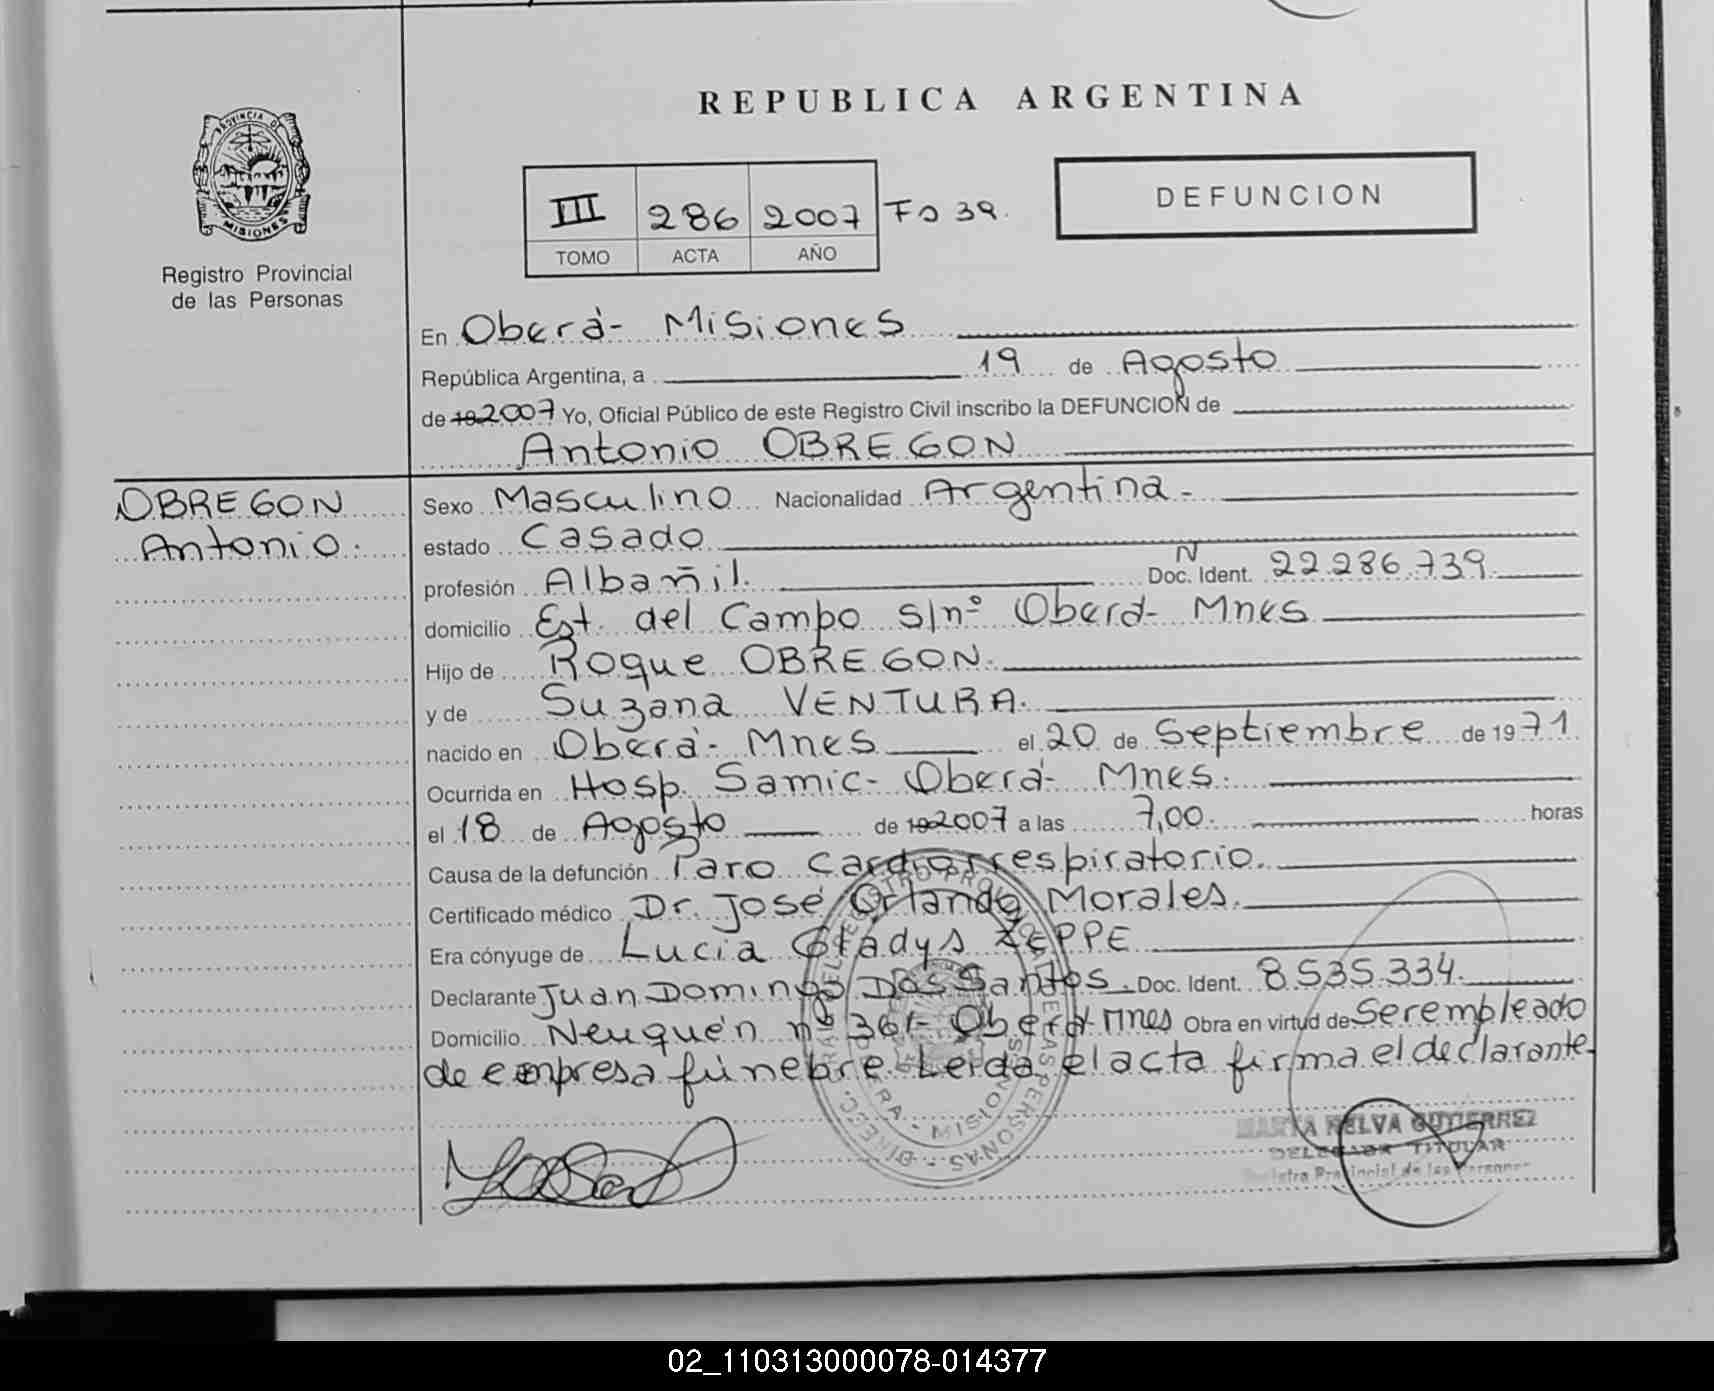 REPUBLICA ARGENTINA
PROVINCIA DE
MISIONES
Registro Provincial
de las Personas
III 286 2007 Fo 39.
TOMO ACTA AÑO
DEFUNCION
En Oberá- Misiones
República Argentina, a 19 de Agosto
de 192007 Yo, Oficial Público de este Registro Civil inscribo la DEFUNCION de
Antonio OBREGON
OBREGON
Antonio.
Sexo Masculino Nacionalidad Argentina-
estado Casado
profesión Albañil. N Doc. Ident. 22.286.739
domicilio Est. del Campo s/nº Oberá- Mnes
Hijo de Roque OBREGON.
y de Suzana VENTURA.
nacido en Oberá- Mnes el 20 de Septiembre de 1971
Ocurrida en Hosp. Samic- Oberá- Mnes.
el 18 de Agosto de 192007 a las 7,00. horas
Causa de la defunción Paro cardiorrespiratorio.
Certificado médico Dr. José Orlando Morales.
Era cónyuge de Lucia Gladys ZEPPE
Declarante Juan Domingo Dos Santos. Doc. Ident. 8.535.334.
Domicilio Neuquén nº 361- Oberá- Mnes Obra en virtud de Ser empleado
de empresa fúnebre Leida el acta firma el declarante
MARTA NELVA GUTIERREZ
DELEGADA TITULAR
Registro Provincial de las Personas
02_110313000078-014377